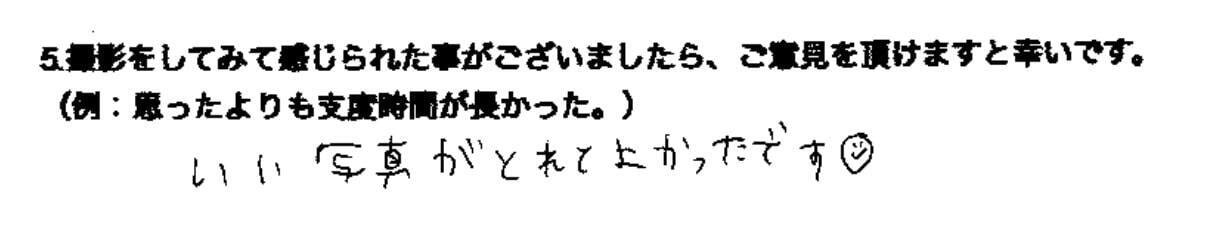 5.撮影をしてみて感じられた事がございましたら、ご意見を頂けますと幸いです。
（例：思ったよりも支度時間が長かった。）
いい写真がとれてよかったです☺